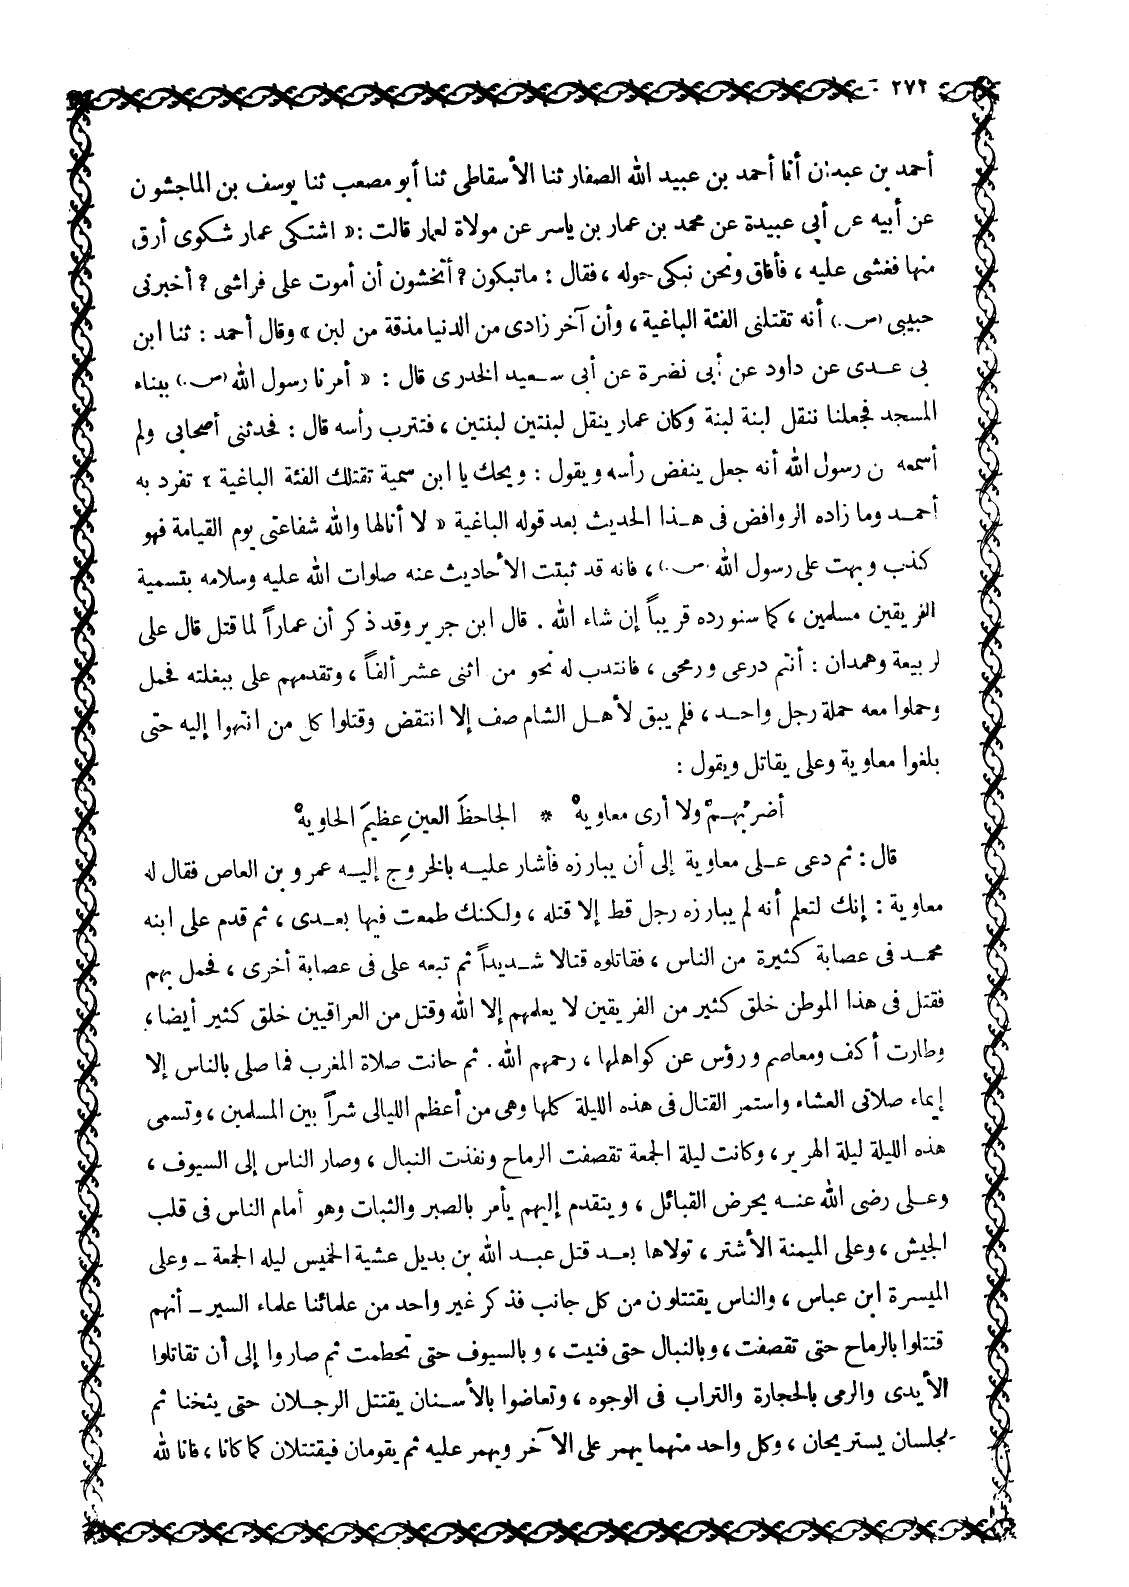 ٢٧٢
أحمد بن عبدان أنا أحمد بن عبيد الله الصفار ثنا الأسقاطى ثنا أبو مصعب ثنا يوسف بن الماجشون
عن أبيه عن أبى عبيدة عن محمد بن عمار بن ياسر عن مولاة لعمار قالت : « اشتكى عمار شكوى أرق
منها فغشى عليه ، فأفاق ونحن نبكى حوله ، فقال : ماتبكون ؟ أتخشون أن أموت على فراشى ؟ أخبرنى
حبيبى (ص.) أنه تقتلنى الفئة الباغية ، وأن آخر زادى من الدنيا مذقة من لبن » وقال أحمد : ثنا ابن
بى عدى عن داود عن أبى نضرة عن أبى سعيد الخدرى قال : « أمرنا رسول الله (ص.) ببناء
المسجد فجعلنا ننقل لبنة لبنة وكان عمار ينقل لبنتين لبنتين ، فتترب رأسه قال : فحدثنى أصحابى ولم
أسمعه ن رسول الله أنه جعل ينفض رأسه ويقول : ويحك يا ابن سمية تقتلك الفئة الباغية » تفرد به
أحمد وما زاده الروافض فى هذا الحديث بعد قوله الباغية « لا أنالها والله شفاعتى يوم القيامة فهو
كذب وبهت على رسول الله (ص.) ، فانه قد ثبتت الأحاديث عنه صلوات الله عليه وسلامه بتسمية
الفريقين مسلمين ، كما سنورده قريباً إن شاء الله . قال ابن جرير وقد ذكر أن عماراً لما قتل قال على
لربيعة وهمدان : أنتم درعى ورمحى ، فانتدب له نحو من اثنى عشر ألفاً ، وتقدمهم على ببغلته فحمل
وحملوا معه حملة رجل واحد ، فلم يبق لأهل الشام صف إلا انتقض وقتلوا كل من انتهوا إليه حتى
بلغوا معاوية وعلى يقاتل ويقول :
أضربُهمْ ولا أرى معاويهْ * الجاحظَ العينِ عظيمَ الحاويهْ
قال : ثم دعى على معاوية إلى أن يبارزه فأشار عليه بالخروج إليه عمرو بن العاص فقال له
معاوية : إنك لتعلم أنه لم يبارزه رجل قط إلا قتله ، ولكنك طمعت فيها بعدى ، ثم قدم على ابنه
محمد فى عصابة كثيرة من الناس ، فقاتلوه قتالا شديداً ثم تبعه على فى عصابة أخرى ، فحمل بهم
فقتل فى هذا الموطن خلق كثير من الفريقين لا يعلمهم إلا الله وقتل من العراقيين خلق كثير أيضا ،
وطارت أكف ومعاصم ورؤس عن كواهلها ، رحمهم الله . ثم حانت صلاة المغرب فما صلى بالناس إلا
إيماء صلاتى العشاء واستمر القتال فى هذه الليلة كلها وهى من أعظم الليالى شراً بين المسلمين ، وتسمى
هذه الليلة ليلة الهرير ، وكانت ليلة الجمعة تقصفت الرماح ونفذت النبال ، وصار الناس إلى السيوف ،
وعلى رضى الله عنه يحرض القبائل ، ويتقدم إليهم يأمر بالصبر والثبات وهو أمام الناس فى قلب
الجيش ، وعلى الميمنة الأشتر ، تولاها بعد قتل عبد الله بن بديل عشية الخميس ليله الجمعة - وعلى
الميسرة ابن عباس ، والناس يقتتلون من كل جانب فذكر غير واحد من علمائنا علماء السير - أنهم
قتتلوا بالرماح حتى تقصفت ، وبالنبال حتى فنيت ، وبالسيوف حتى تحطمت ثم صاروا إلى أن تقاتلوا
الأيدى والرمى بالحجارة والتراب فى الوجوه ، وتعاضوا بالأسنان يقتتل الرجلان حتى يثخنا ثم
يجلسان يستريحان ، وكل واحد منهما يهمر على الآخر ويهمر عليه ثم يقومان فيقتتلان كما كانا ، فانا لله